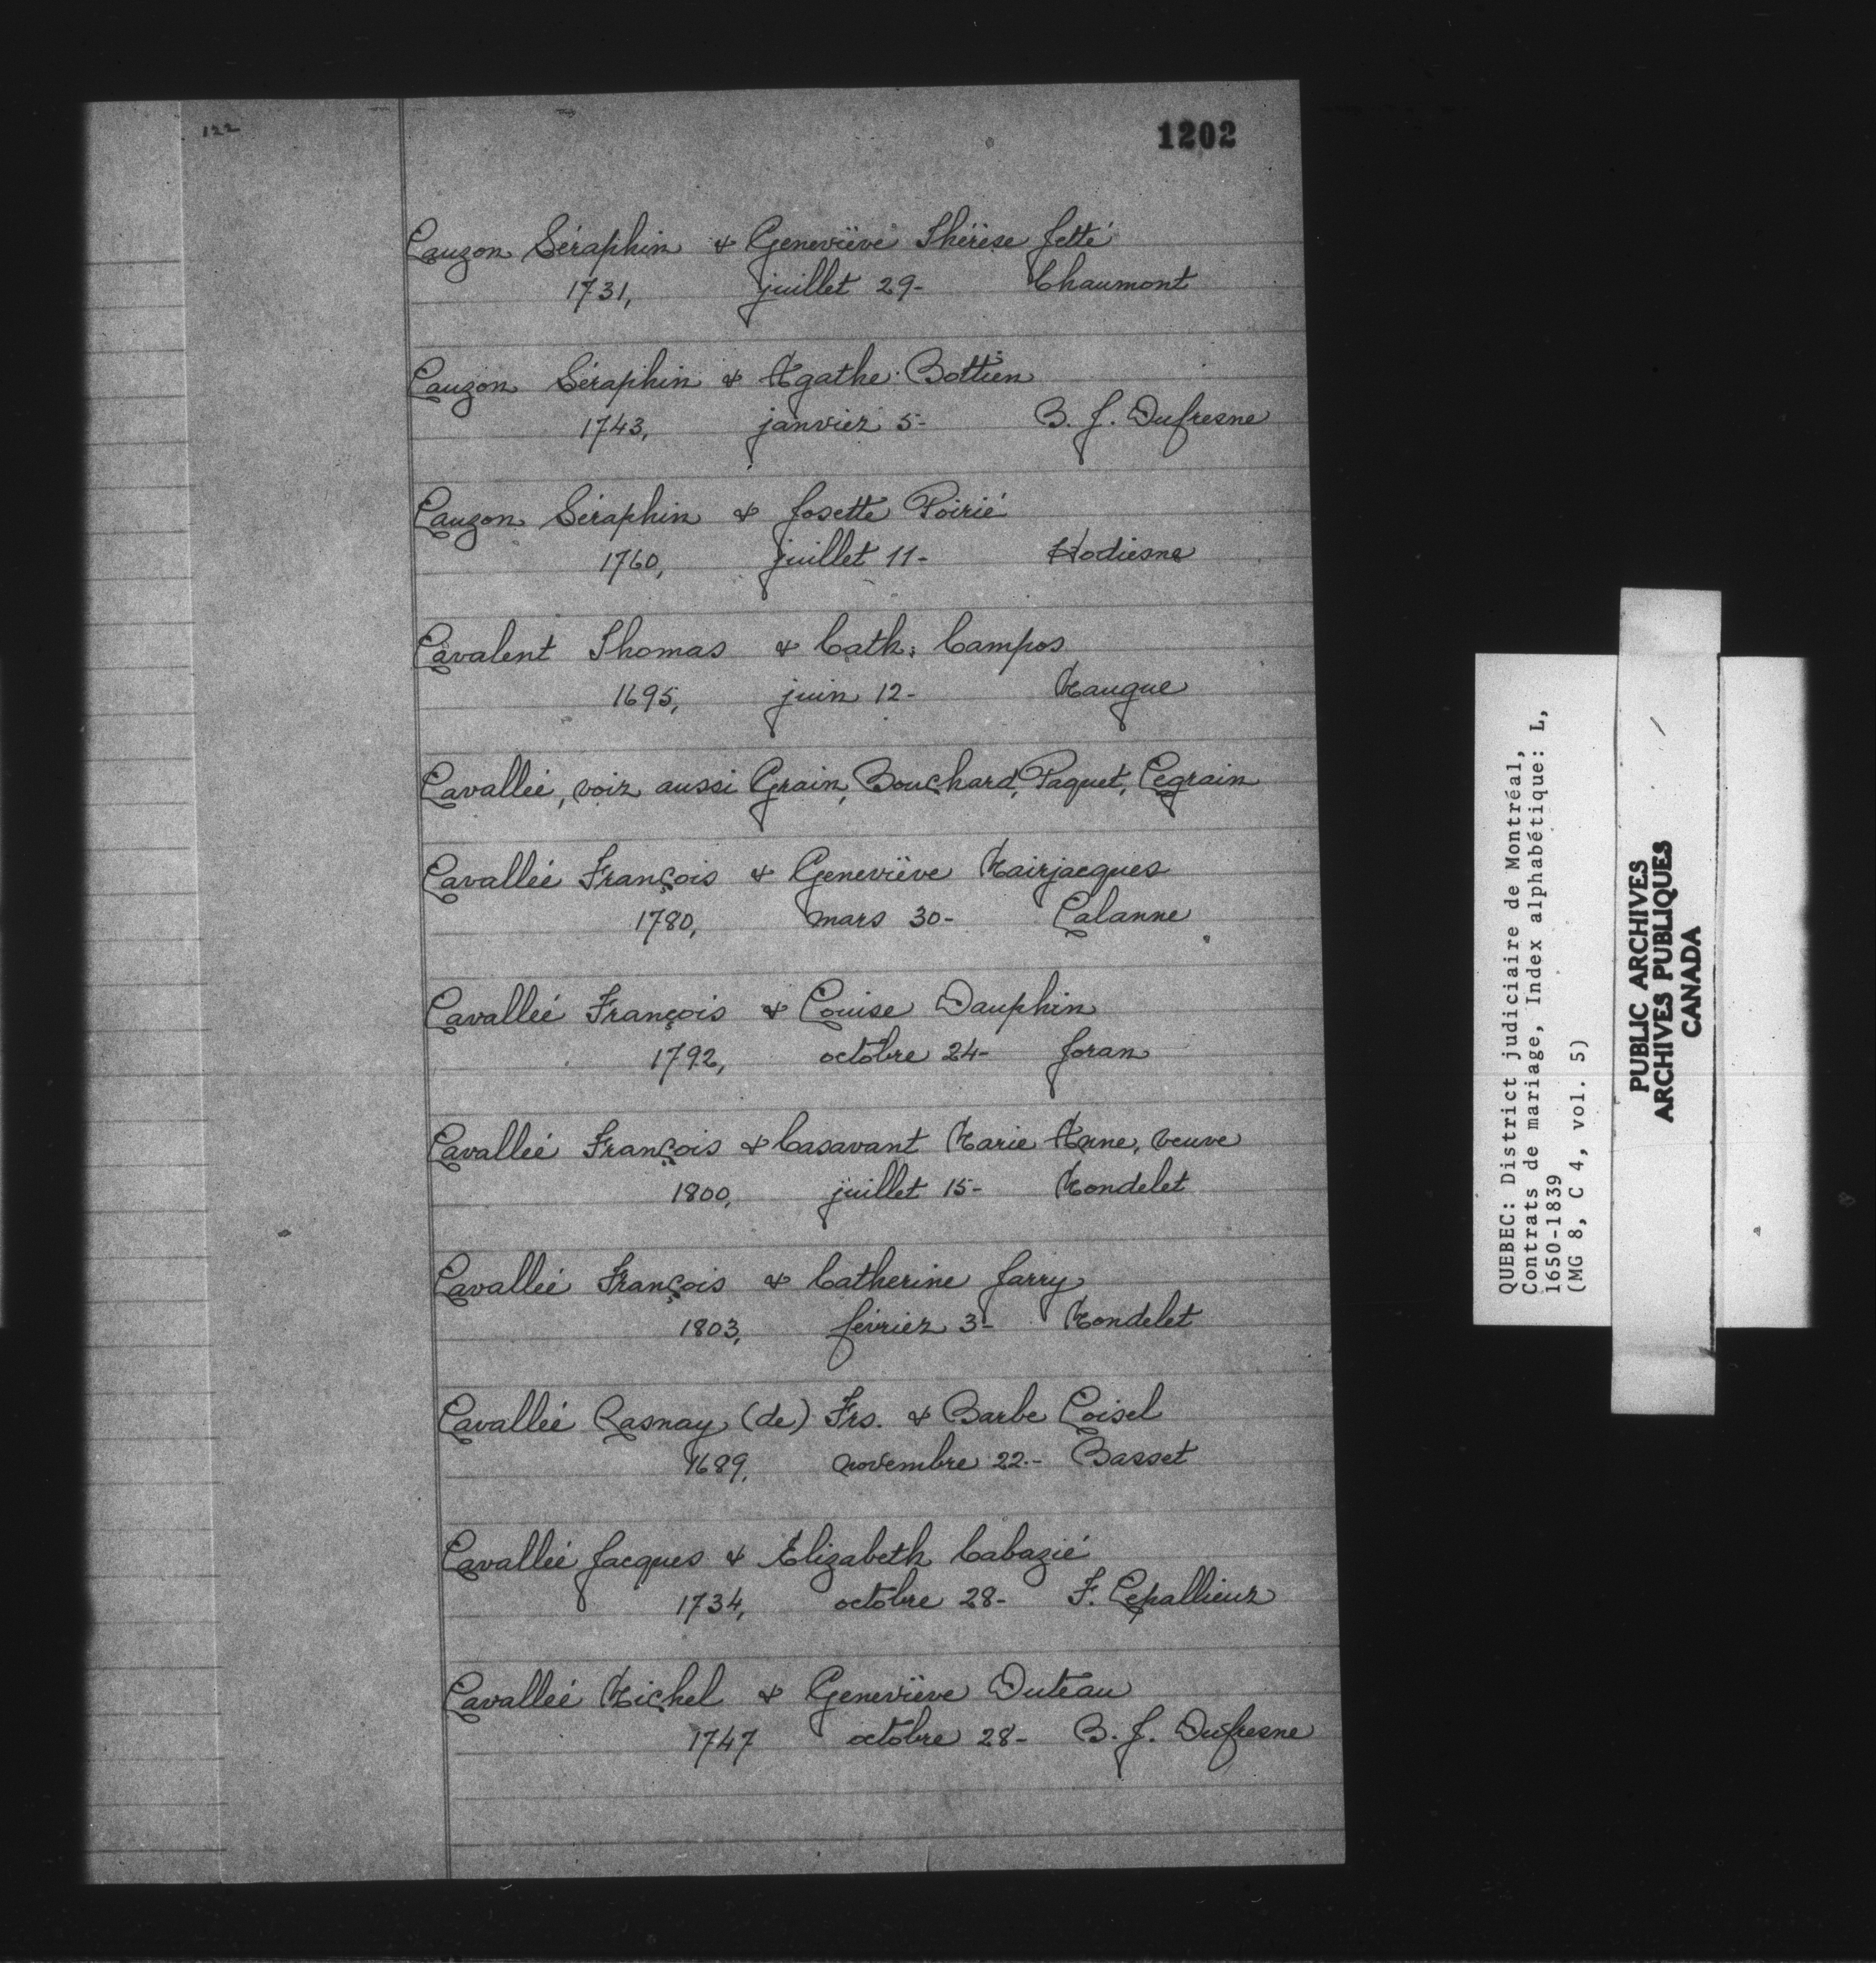 122
1202
Lauzon Séraphin & Geneviève Thérèse Jetté
1731, juillet 29- Chaumont
Lauzon Séraphin & Agathe Bottien
1743, janvier 5- B. J. Dufresne
Lauzon Séraphin & Josette Poirié
1760, juillet 11- Hodiesne
Lavalent Thomas & Cath. Campos
1695, juin 12- Maugue
Lavallée, voir aussi Grain, Bouchard, Paquet, Legrain
Lavallée François & Geneviève Mairjacques
1780, mars 30- Lalanne
Lavallée François & Louise Dauphin
1792, octobre 24- Joran
Lavallée François & Casavant Marie Anne, veuve
1800, juillet 15- Mondelet
Lavallée François & Catherine Jarry
1803, février 3- Mondelet
Lavallée Rasnay (de) Frs. & Barbe Loisel
1689, novembre 22.- Basset
Lavallée Jacques & Elizabeth Cabazié
1734, octobre 28- F. Lepallieur
Lavallée Michel & Geneviève Duteau
1747 octobre 28- B. J. Dufresne
QUEBEC: District judiciaire de Montréal,
Contrats de mariage, Index alphabétique: L,
1650-1839
(MG 8, C 4, vol. 5)
PUBLIC ARCHIVES
ARCHIVES PUBLIQUES
CANADA